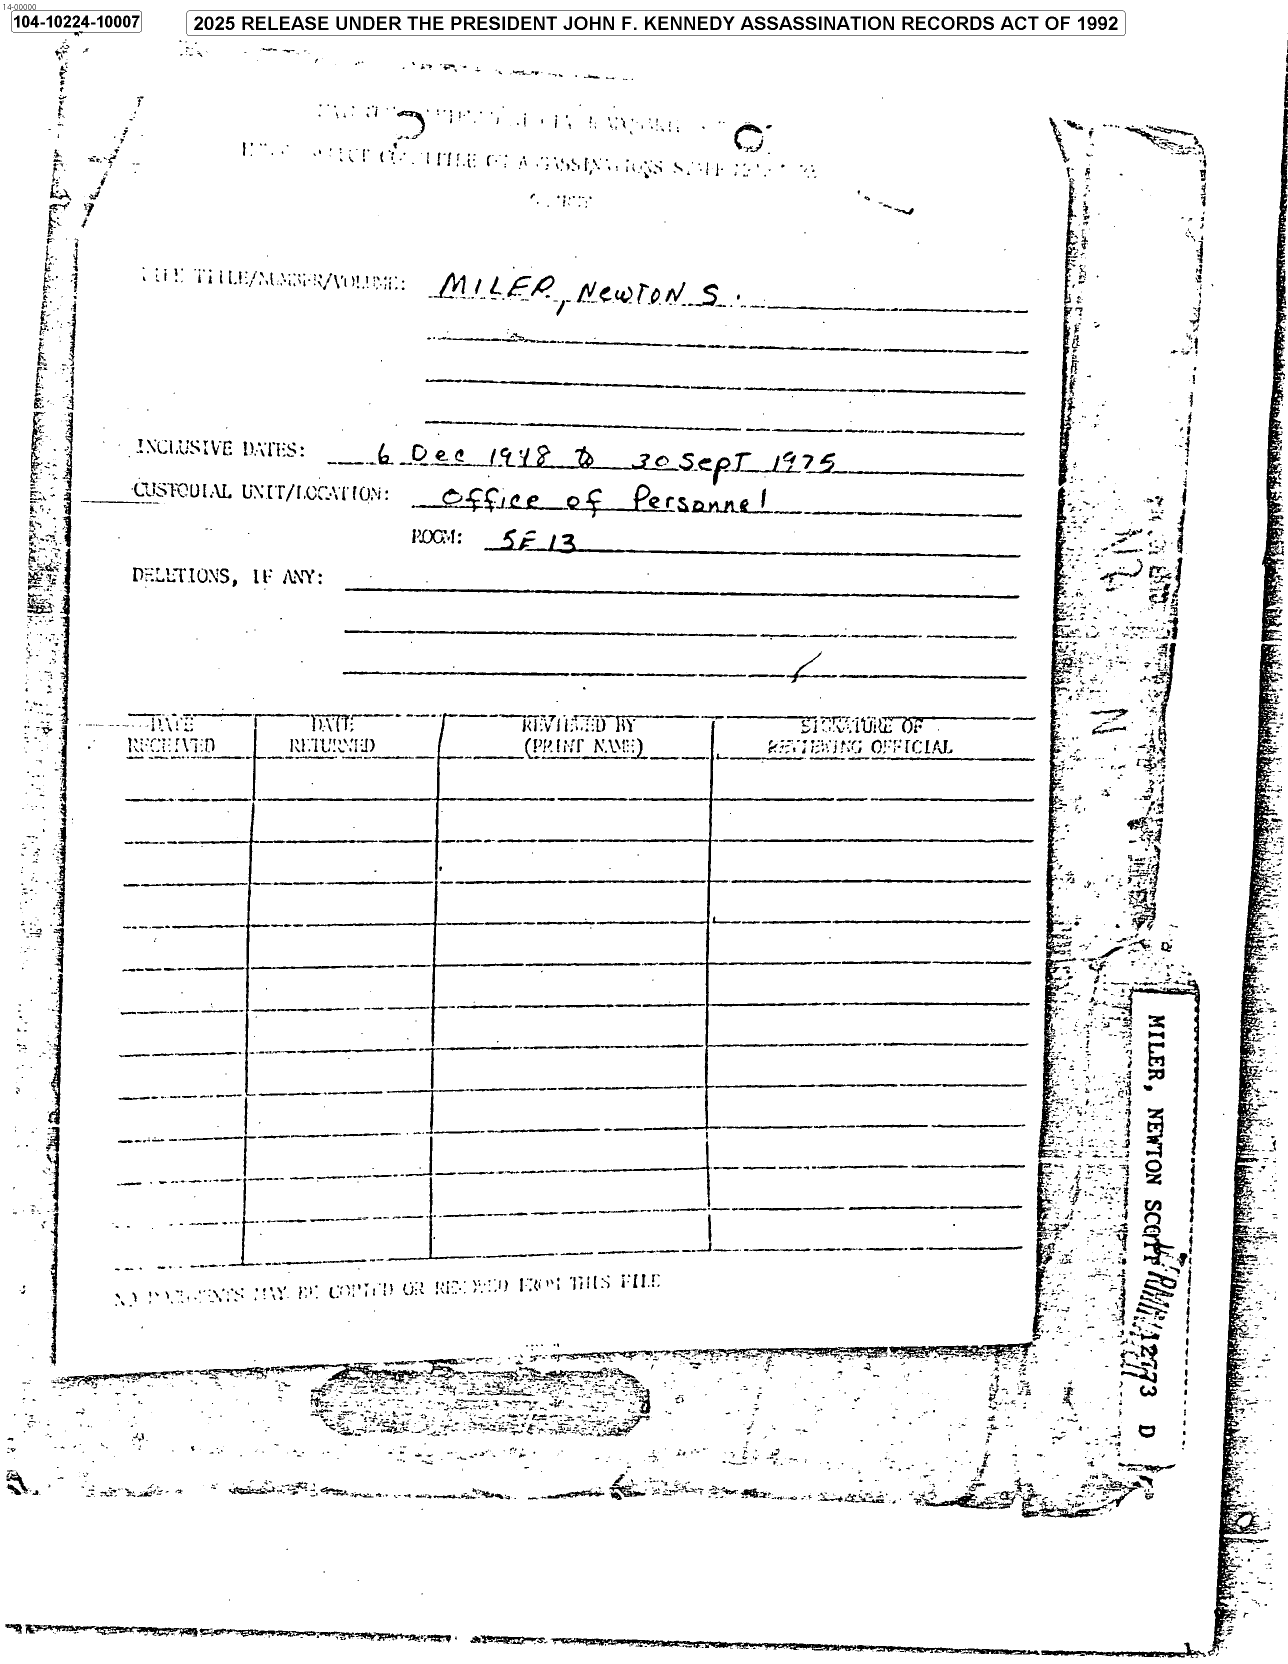 14-00000
104-10224-10007
2025 RELEASE UNDER THE PRESIDENT JOHN F. KENNEDY ASSASSINATION RECORDS ACT OF 1992
COMMITTEE ON ASSASSINATIONS STAFF
FILE TITLE/NUMBER/VOLUME: MILER, NewTON S.
INCLUSIVE DATES: 6 Dec 1948 to 30 SepT 1975
CUSTODIAL UNIT/LOCATION: Office of Personnel
ROOM: 5E 13
DELETIONS, IF ANY:
DATE RECEIVED
DATE RETURNED
REVIEWED BY (PRINT NAME)
SIGNATURE OF REVIEWING OFFICIAL
NO DOCUMENTS MAY BE COPIED OR REMOVED FROM THIS FILE
MILER, NEWTON SCOTT
D